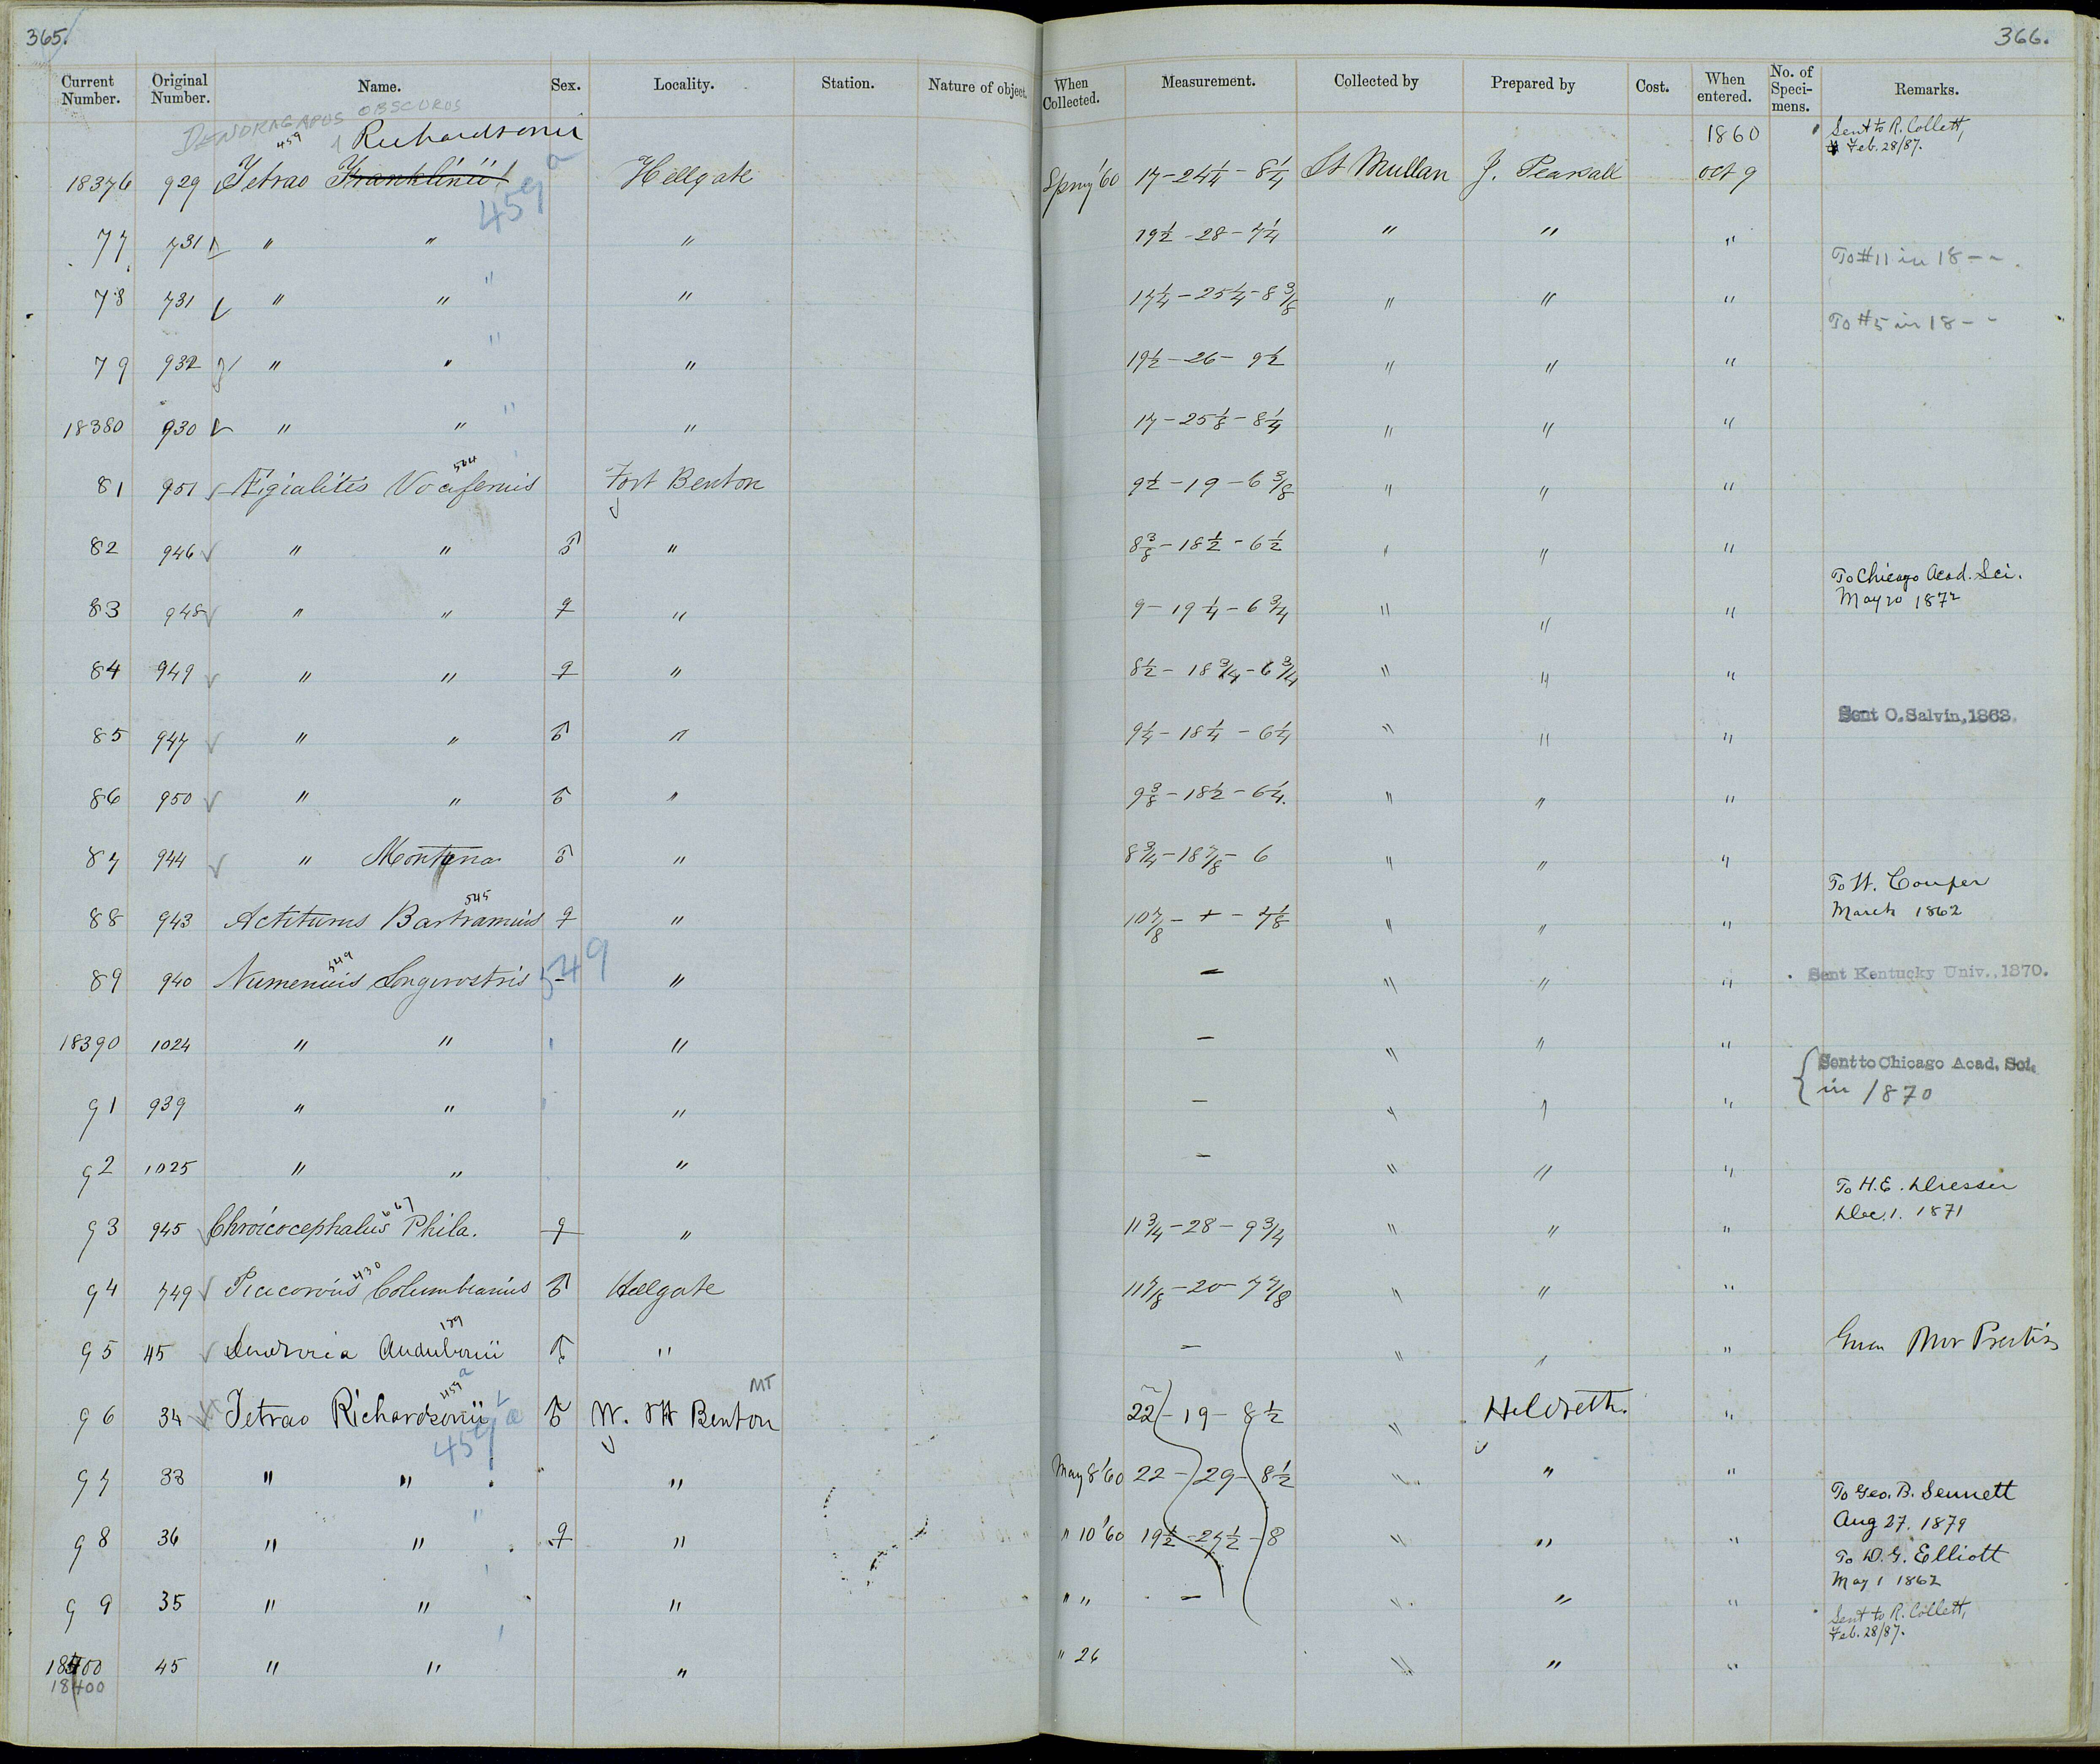 365.
366.
Current Number. Original Number. Name. Sex. Locality. Station. Nature of object. When Collected. Measurement. Collected by Prepared by Cost. When entered. No. of Speci-mens. Remarks.
DENDRAGAPUS OBSCURUS
459 Richardsonii 1860 Sent to R. Collett,
Feb. 28/87.
18376 929 Tetrao Franklinii 459a Hellgate Spring '60 17 - 24 1/4 - 8 1/4 Lt Mullan J. Pearsall Oct 9
77 731 " " " 19 1/2 - 28 - 7 1/4 " " "
To #11 in 18 - -.
78 731 " " " " 17 1/4 - 25 1/4 - 8 3/8 " " "
To #5 in 18 - -
79 932 " " " " 19 1/2 - 26 - 9 1/2 " " "
18380 930 " " " " 17 - 25 1/8 - 8 1/4 " " "
504
81 951 Ægialitis Vociferus Fort Benton 9 1/2 - 19 - 6 3/8 " " "
82 946 " " ♂ " 8 3/8 - 18 1/2 - 6 1/2 " " "
To Chicago Acad. Sci.
May 20 1872
83 948 " " ♀ " 9 - 19 1/4 - 6 3/4 " " "
84 949 " " ♀ " 8 1/2 - 18 3/4 - 6 3/4 " " "
Sent O. Salvin, 1863.
85 947 " " ♂ " 9 1/4 - 18 1/4 - 6 1/4 " " "
86 950 " " ♂ " 9 3/8 - 18 1/2 - 6 1/4. " " "
87 944 " Montana ♂ " 8 3/4 - 18 7/8 - 6 " " "
To W. Couper
March 1862
545
88 943 Actiturus Bartramius ♀ " 10 7/8 - + - 7 1/8 " " "
549
89 940 Numenius Longirostris - 549 " - " " " Sent Kentucky Univ., 1870.
18390 1024 " " " - " " "
Sent to Chicago Acad. Sci.
in 1870
91 939 " " " - " " "
92 1025 " " " - " " "
To H.E. Dresser
Dec. 1. 1871
667
93 945 Chroicocephalus Phila. ♀ " 11 3/4 - 28 - 9 3/4 " " "
430
94 749 Picicorvus Columbianus ♂ Hellgate 11 7/8 - 20 - 7 7/8 " " "
189
95 45 Dendroica Audubonii ♂ " - " " "
459a MT
96 34 Tetrao Richardsonii 459a ♂ W. Ft Benton 22 - 19 - 8 1/2 " Hildreth. "
97 33 " " " May 8 '60 22 - 29 - 8 1/2 " " "
To Geo. B. Sennett
Aug 27. 1879
98 36 " " " ♀ " " 10 '60 19 1/2 - 27 1/2 - 8 " " "
To D. G. Elliott
May 1 1862
99 35 " " " " " - " " "
Sent to R. Collett,
Feb. 28/87.
45 " " " " 26 " " "
18400